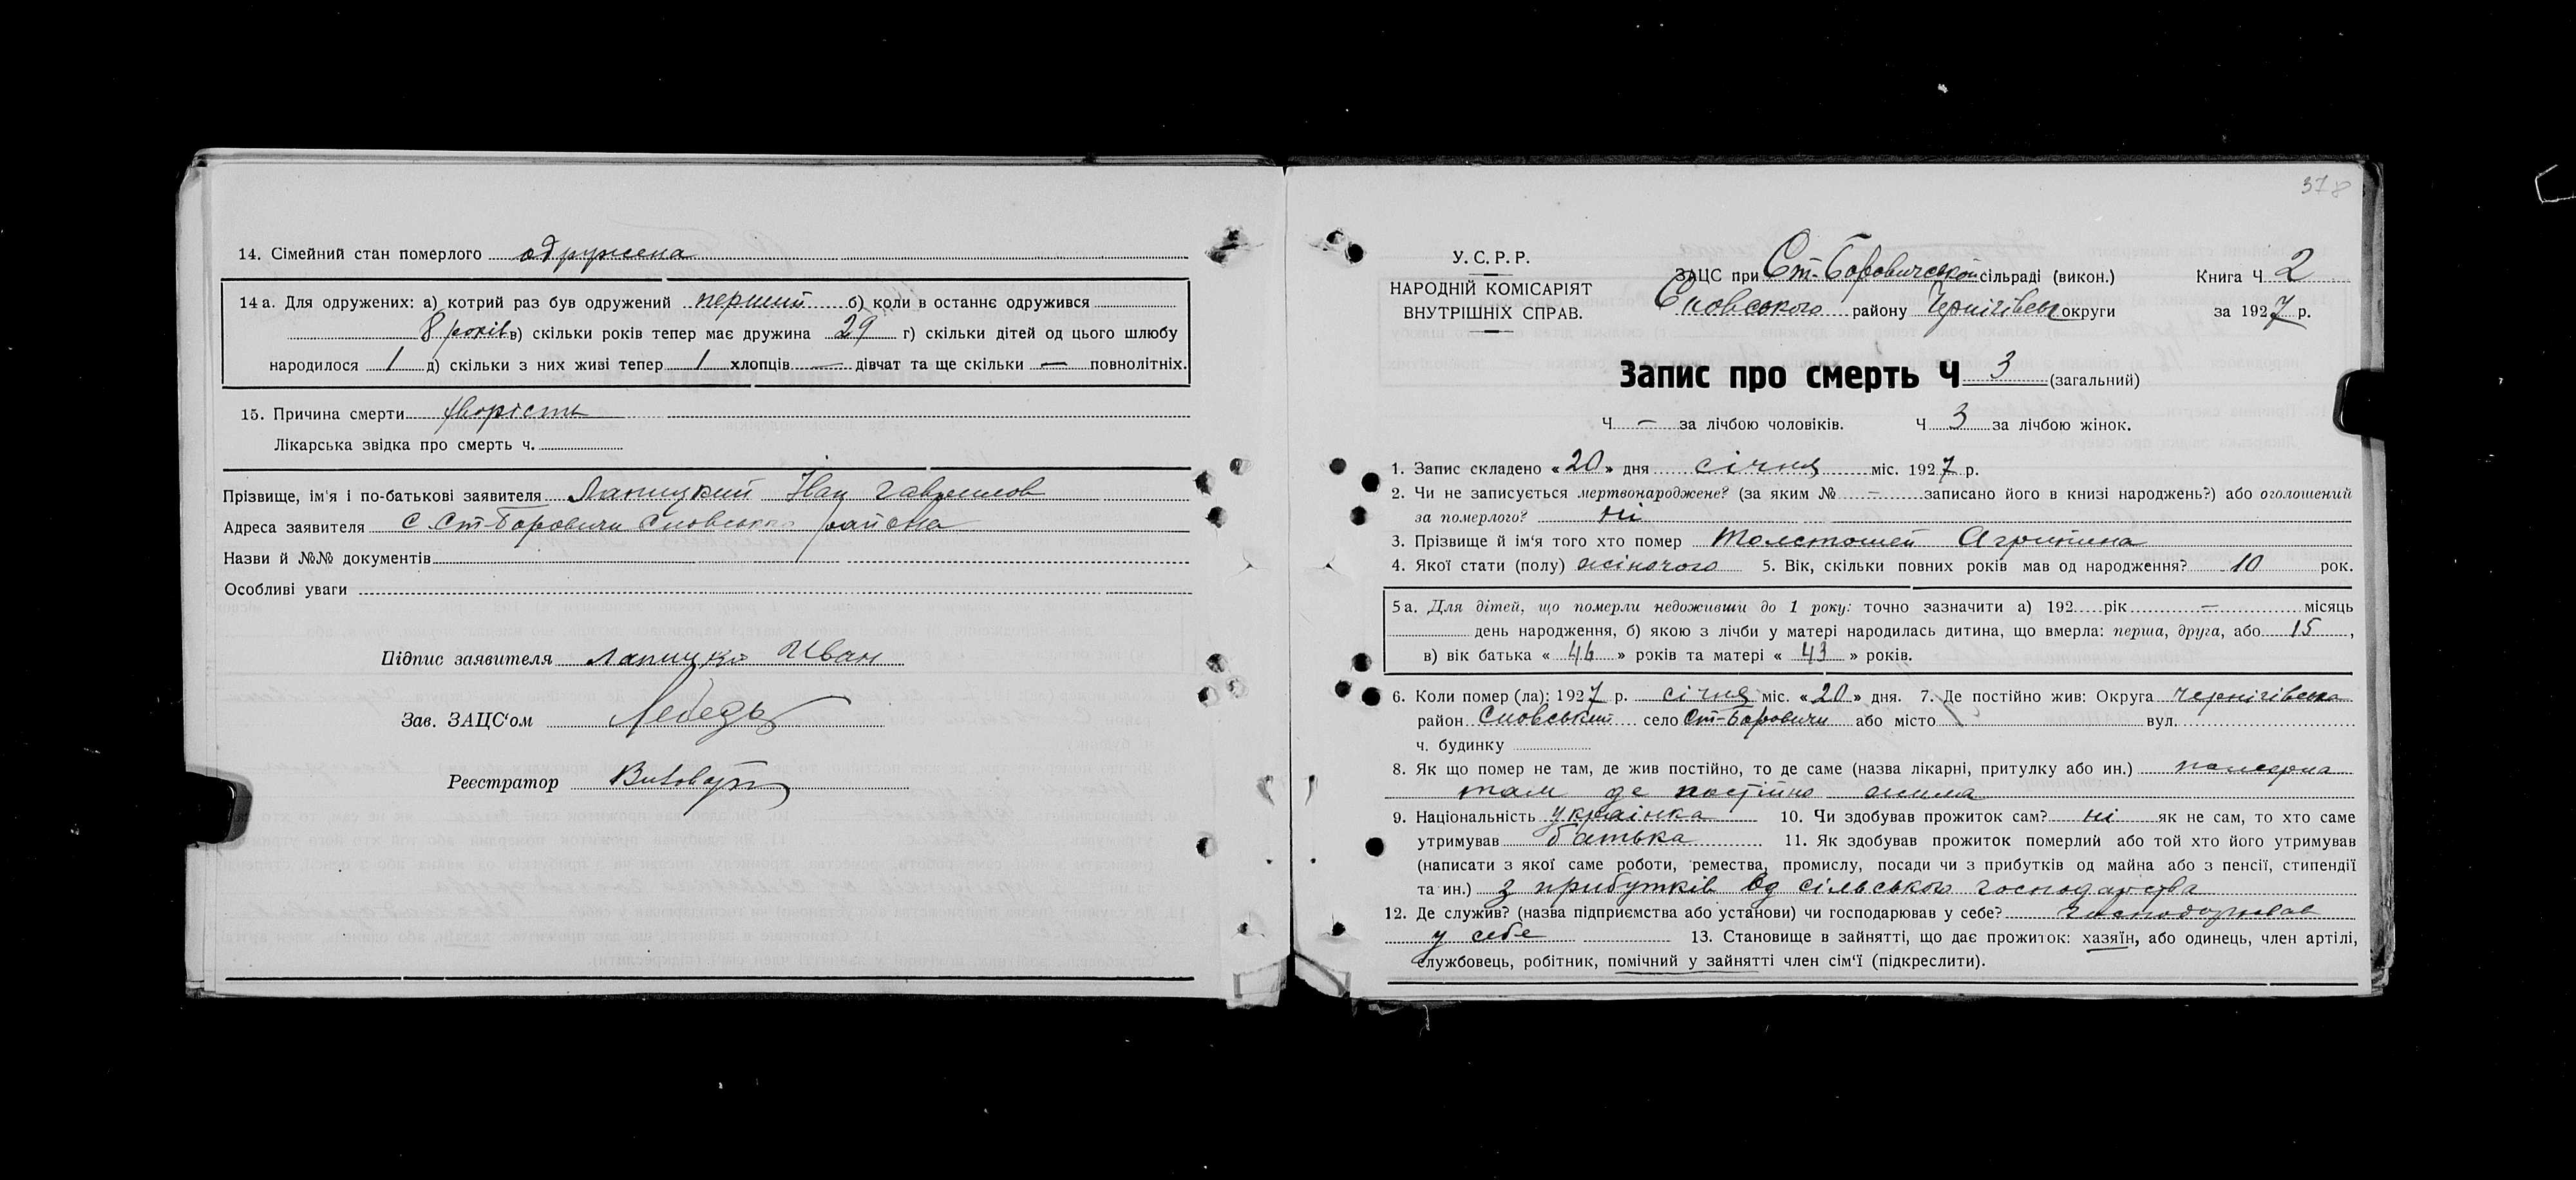 14. Сімейний стан померлого одружена
14 а. Для одружених: а) котрий раз був одружений перший б) коли в останнє одружився
8 років в) скільки років тепер має дружина 29 г) скільки дітей од цього шлюбу
народилося 1 д) скільки з них живі тепер 1 хлопців — дівчат та ще скільки — повнолітніх.
15. Причина смерти хворість
Лікарська звідка про смерть ч.
Прізвище, ім'я і по-батькові заявителя Лапицкий Иван Гаврилов
Адреса заявителя с. Ст-Боровичи Сновського района
Назви й №№ документів
Особливі уваги
Підпис заявителя Лапицко Иван
Зав. ЗАЦС'ом Лебедь
Реєстратор
378
У. С. Р. Р.
НАРОДНІЙ КОМІСАРІЯТ
ВНУТРІШНІХ СПРАВ.
ЗАЦС при Ст-Боровичськой сільраді (викон.) Книга Ч 2
Сновського району Чернігівськ округи за 1927 р.
Запис про смерть Ч 3 (загальний)
Ч — за лічбою чоловіків. Ч 3 за лічбою жінок.
1. Запис складено « 20 » дня січня міс. 1927 р.
2. Чи не записується мертвонароджене? (за яким № — записано його в книзі народжень?) або оголошений
за померлого? ні
3. Прізвище й ім'я того хто помер Толстошей Агрипина
4. Якої стати (полу) жіночого 5. Вік, скільки повних років мав од народження? 10 рок.
5 а. Для дітей, що померли недоживши до 1 року: точно зазначити а) 192 рік — місяць
день народження, б) якою з лічби у матері народилась дитина, що вмерла: перша, друга, або 15 ,
в) вік батька « 46 » років та матері « 43 » років.
6. Коли помер (ла): 1927 р. січня міс. « 20 » дня. 7. Де постійно жив: Округа Чернігівська
район Сновський село Ст-Боровичи або місто вул.
ч. будинку
8. Як що помер не там, де жив постійно, то де саме (назва лікарні, притулку або ин.) померла
там де постійно жила
9. Національність українка 10. Чи здобував прожиток сам? ні як не сам, то хто саме
утримував батька 11. Як здобував прожиток померлий або той хто його утримував
(написати з якої саме роботи, ремества, промислу, посади чи з прибутків од майна або з пенсії, стипендії
та ин.) з прибутків од сільського господарства
12. Де служив? (назва підприємства або установи) чи господарював у себе? господарював
у себе 13. Становище в зайнятті, що дає прожиток: хазяїн, або одинець, член артілі,
службовець, робітник, помічний у зайнятті член сім'ї (підкреслити).